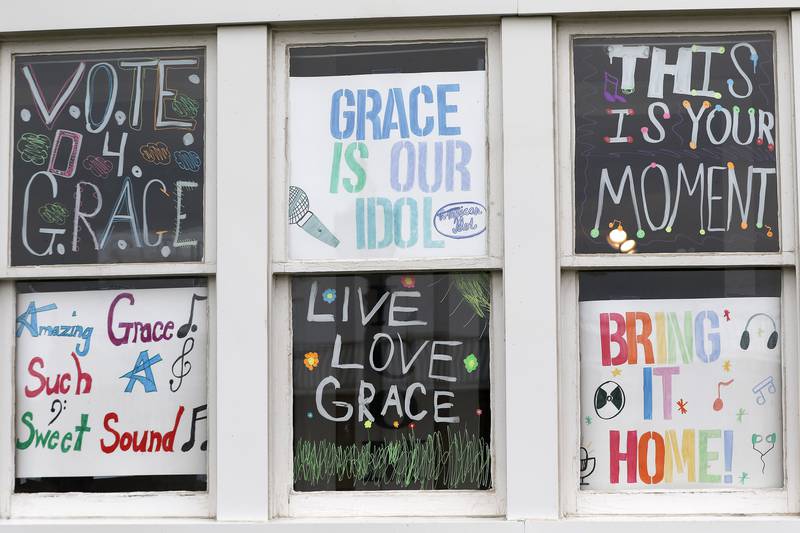 V.O.T.E.
4.
G.R.A.C.E
GRACE
IS OUR
IDOL
American
Idol
THIS
IS YOUR
MOMENT
Amazing Grace
Such A
Sweet Sound
LIVE
LOVE
GRACE
BRING
IT
HOME!